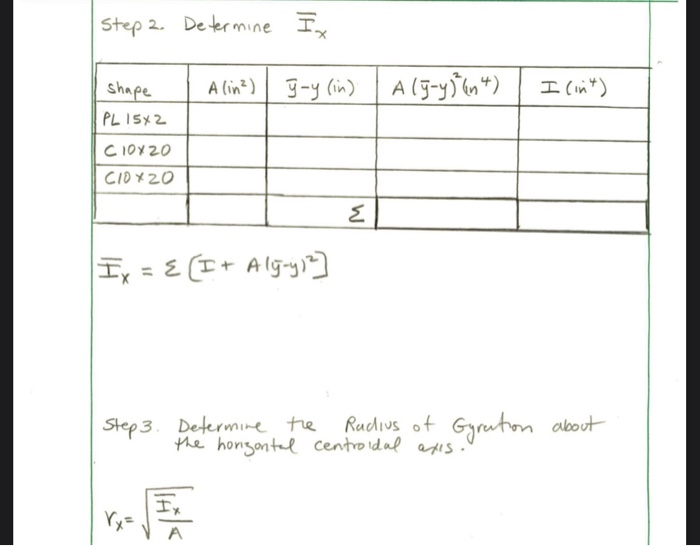 Step 2. Determine I̅x
Shape A (in²) y̅-y (in) A (y̅-y)² (in⁴) I (in⁴)
PL 15x2
C 10x20
C10x20
Σ
I̅x = Σ [I + A(y̅-y)²]
Step 3. Determine the Radius of Gyration about
the horizontal centroidal axis.
rx = √(I̅x / A)